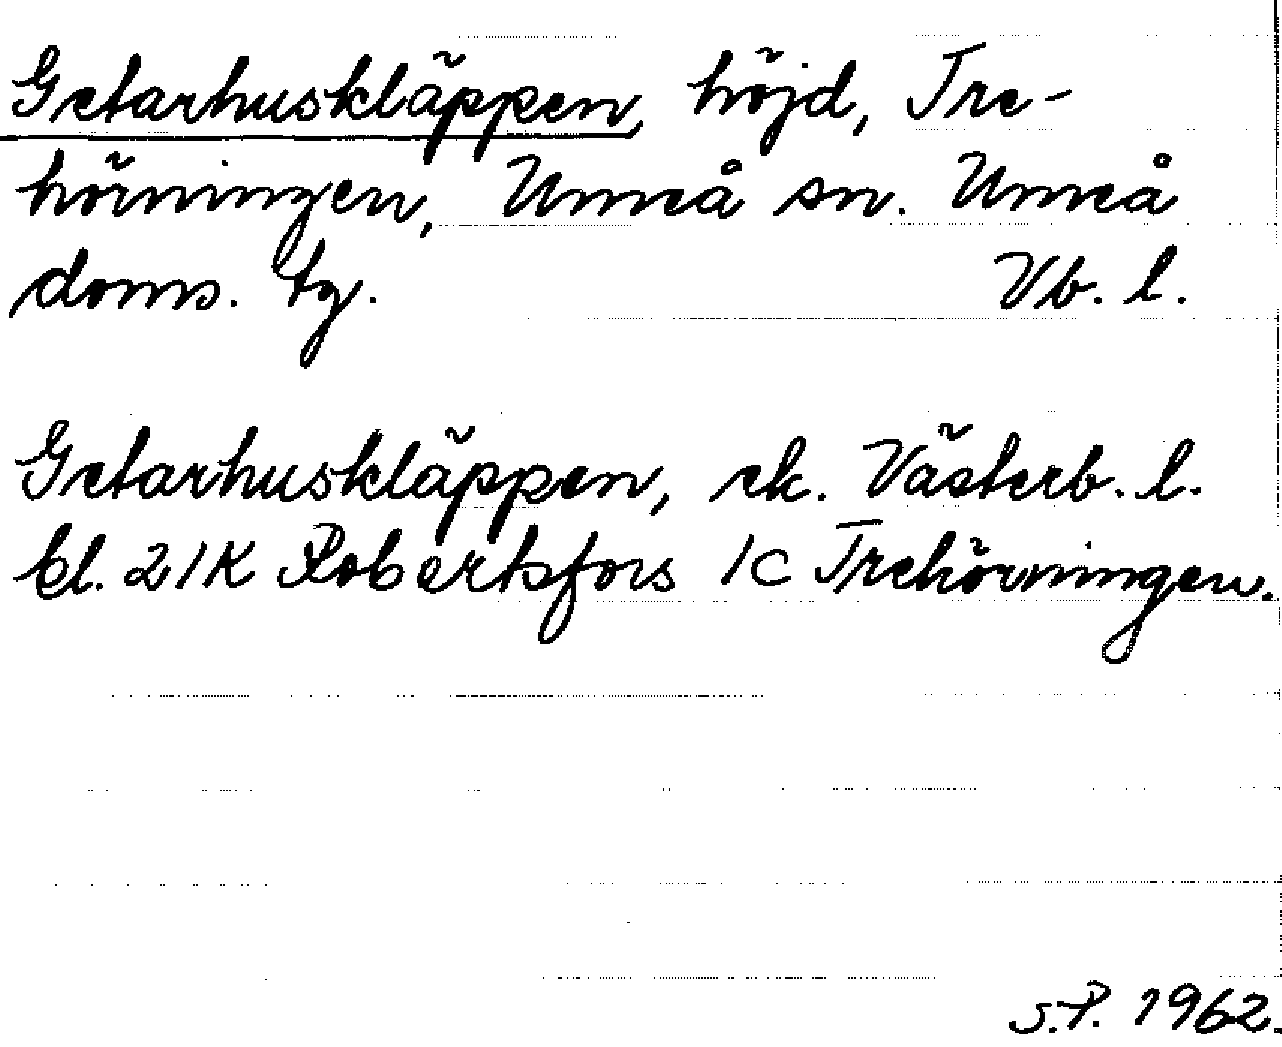 Getarhuskläppen, höjd, Tre-
hörningen, Umeå sn. Umeå
doms. tg. Vb. l.
Getarhuskläppen, ek. Västerb. l.
bl. 21K Robertsfors 1C Trehörningen.
S.P. 1962.